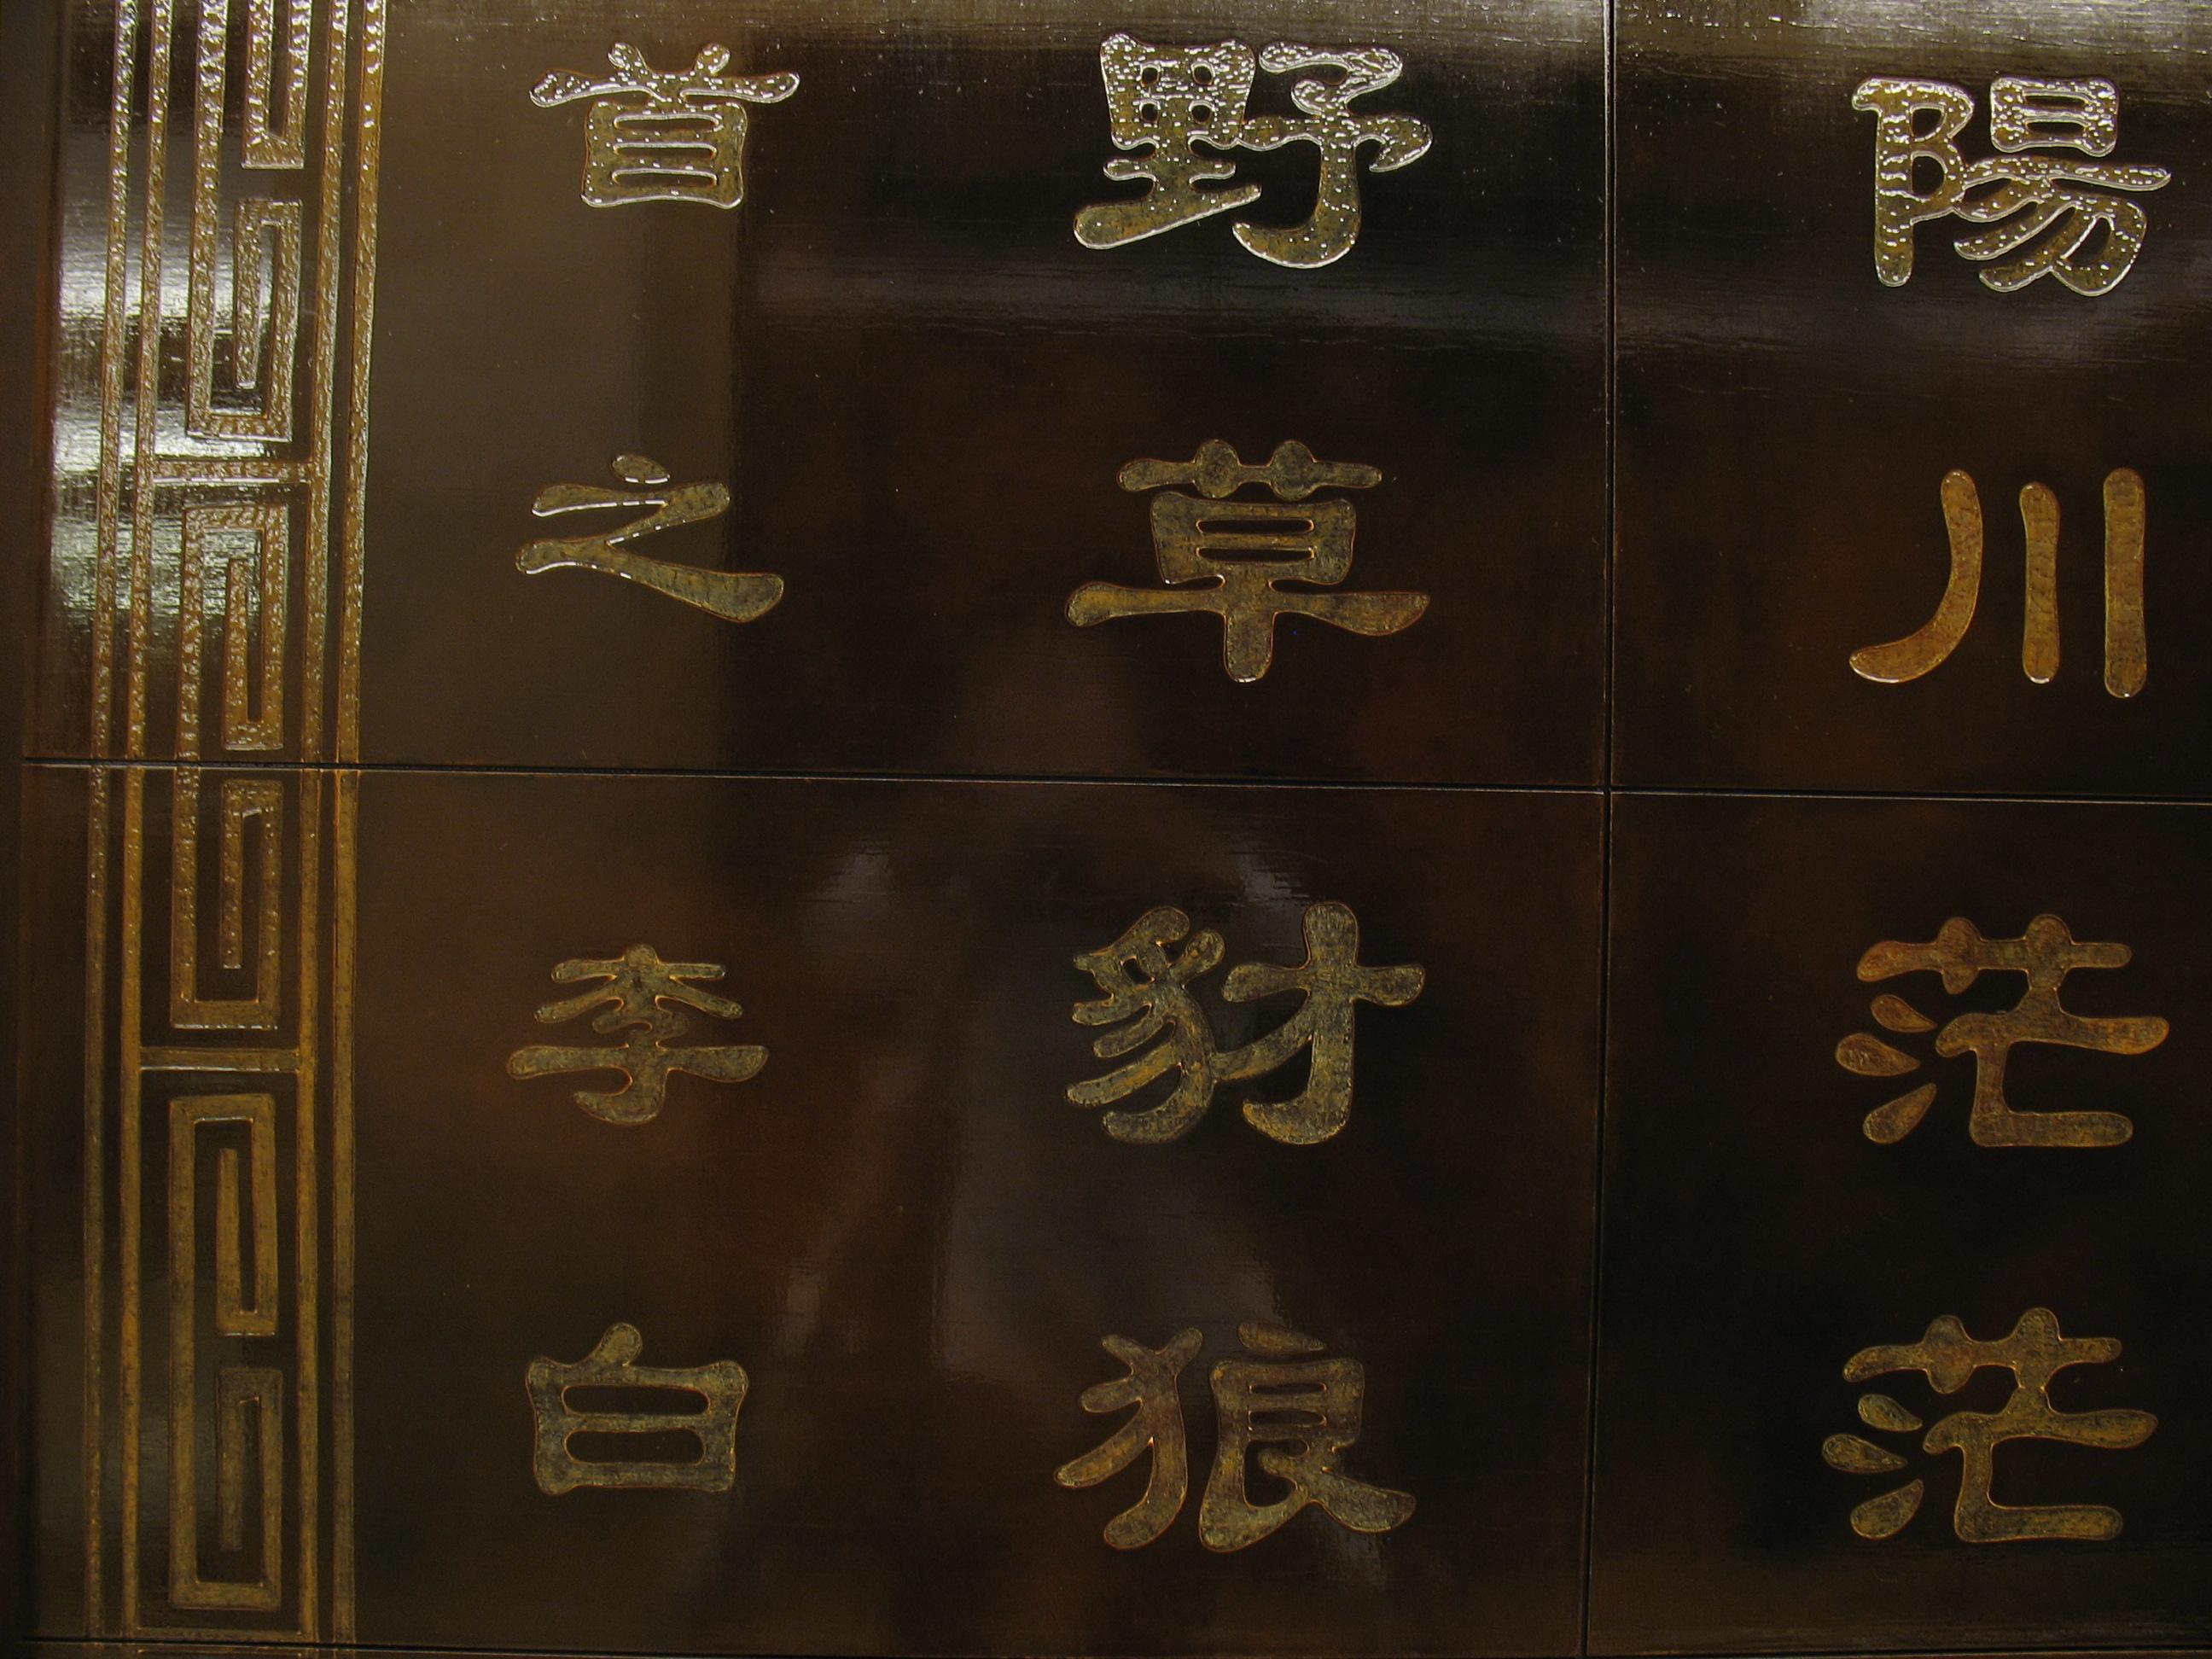 陽川茫茫
野草豺狼
首之李白